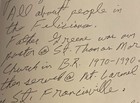 All about people in
the Felicianas.
Father Greene was our
pastor @ St. Thomas Mor
Church in B.R. 1970-1990-
then served @ Mt Carmel
St. Francisville.